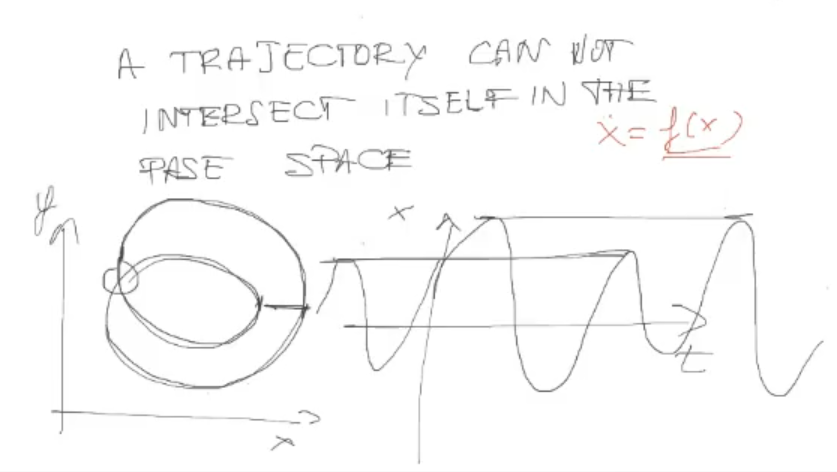 A TRAJECTORY CAN NOT
INTERSECT ITSELF IN THE
ẋ = f(x)
PASE SPACE
y
x
x
t